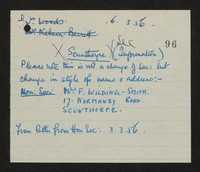 Woods. 6. 3. 56.
96
Scunthorpe (Sec Information)
Please note this is not a change of Sec. but
change in style of name & address:-
Hon: Sec: Mr F. WILDING-SMITH
17. NORMANBY ROAD.
SCUNTHORPE.
from letter from Hon Sec. 3. 3. 56.